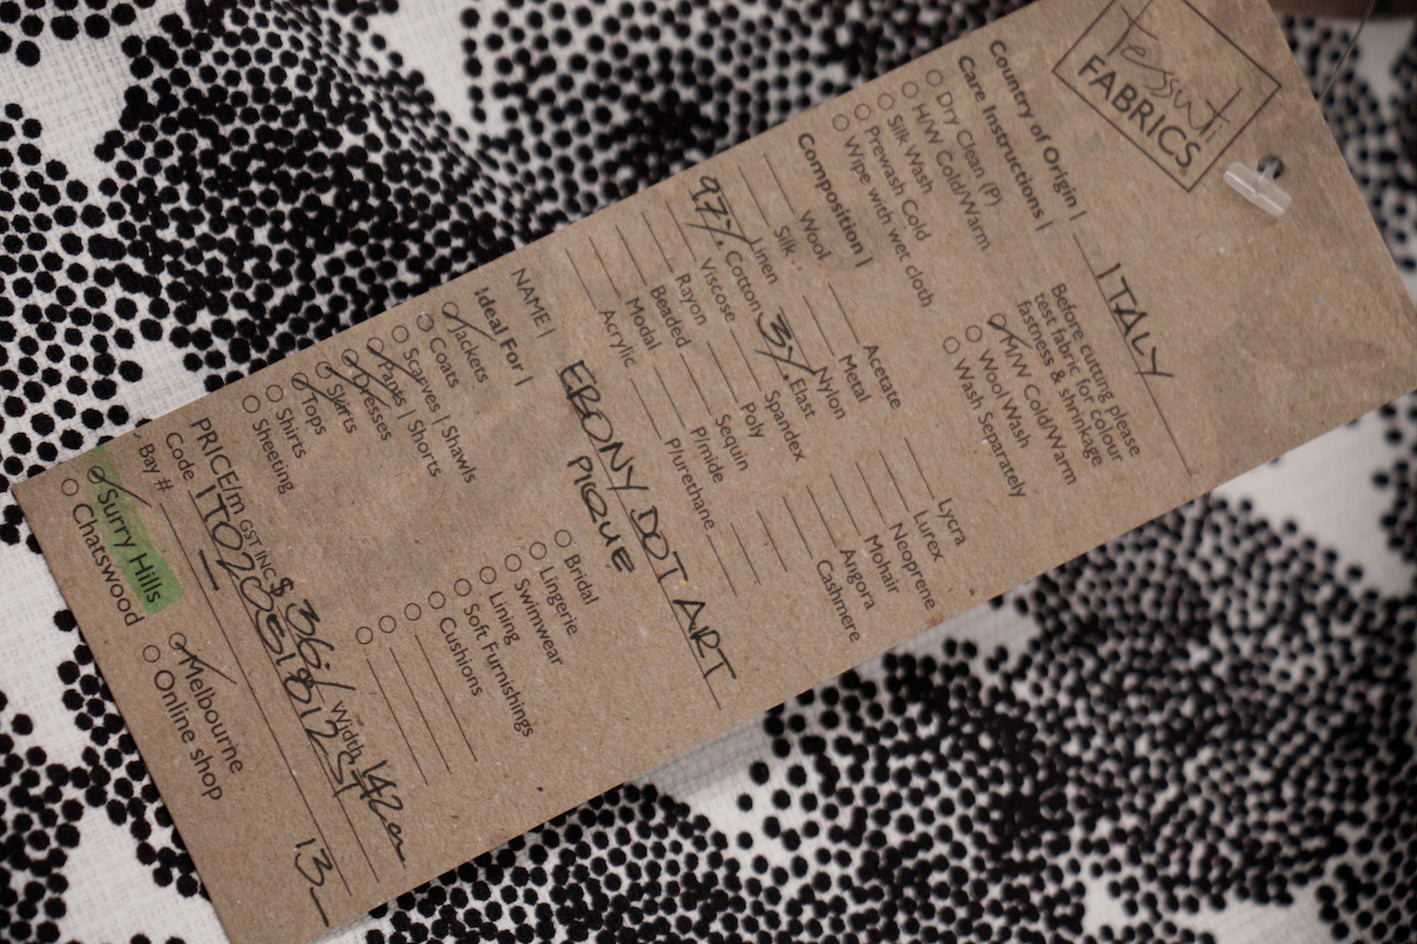 Tessuti
FABRICS
Country of Origin | ITALY
Care Instructions | Before cutting please
test fabric for colour
fastness & shrinkage
Dry Clean (P) M/W Cold/Warm
H/W Cold/Warm Wool Wash
Silk Wash Wash Separately
Prewash Cold
Wipe with wet cloth
Composition |
Wool Acetate Lycra
Silk Metal Lurex
Linen Nylon Neoprene
97% Cotton 3% Elast Mohair
Viscose Spandex Angora
Rayon Poly Cashmere
Beaded Sequin
Modal P/mide
Acrylic P/urethane
NAME | EBONY DOT ART
PIQUE
Ideal For |
Jackets Bridal
Coats Lingerie
Scarves | Shawls Swimwear
Pants | Shorts Lining
Dresses Soft Furnishings
Skirts Cushions
Tops
Shirts
Sheeting
PRICE/m GST INC $36 / Width 142cm
Code
Bay # 13
Surry Hills Melbourne
Chatswood Online shop